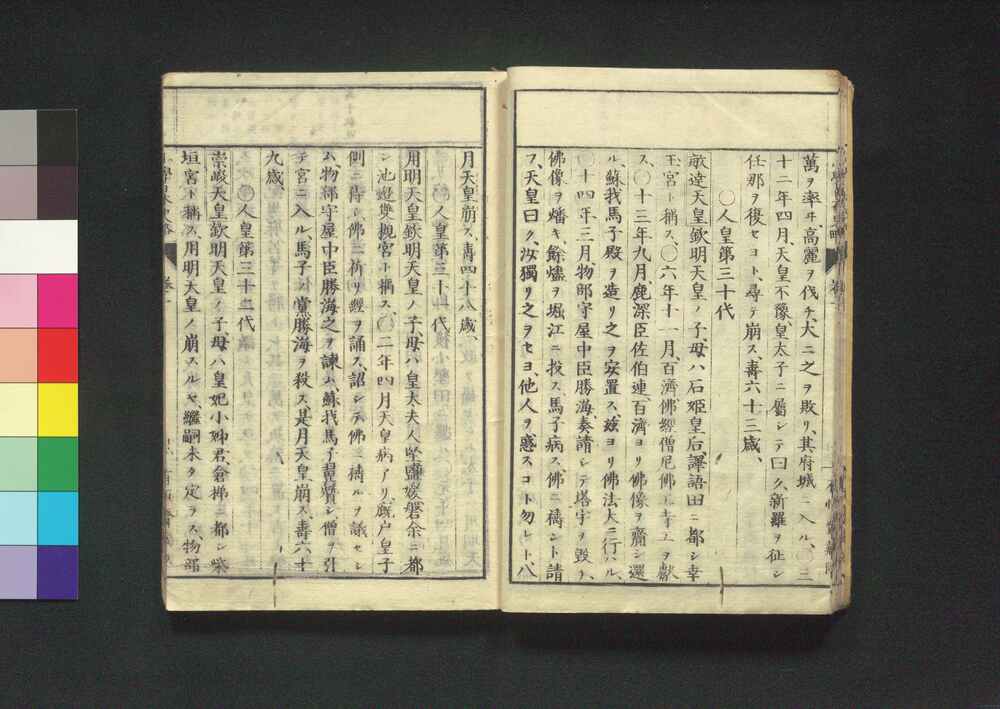 萬ヲ率ヰ高麗ヲ伐チ、大ニ之ヲ敗リ、其府城ニ入ル、〇三
十二年四月、天皇不豫、皇太子ニ屬シテ曰ク、新羅ヲ征シ
任那ヲ復セヨト、尋テ崩ス、壽六十三歳、
〇人皇第三十代
敏達天皇、欽明天皇ノ子、母ハ石姫皇后、譯語田ニ都シ幸
玉宮ト稱ス、〇六年十一月、百濟佛經僧尼佛工寺工ヲ獻
ス、〇十三年九月、鹿深臣佐伯連、百濟ヨリ佛像ヲ齎シ還
ル、蘇我馬子殿ヲ造リ之ヲ安置ス、玆ヨリ佛法大ニ行ハル、
〇十四年三月、物部守屋中臣勝海、奏請シテ塔宇ヲ毀リ、
佛像ヲ燔キ、餘燼ヲ堀江ニ投ス、馬子病ス、佛ニ禱ント請
フ、天皇曰ク、汝獨リ之ヲセヨ、他人ヲ惑スコト勿レト、八
月天皇崩ス、壽四十八歳、
〇人皇第三十一代
用明天皇、欽明天皇ノ子、母ハ皇太夫人堅鹽媛、磐余ニ都
シ池邊雙槻宮ト稱ス、〇二年四月、天皇病アリ、廐戸皇子
側ニ侍シ、佛ニ祈リ經ヲ誦ス、詔シテ佛ニ禱ルヲ議セシ
ム、物部守屋中臣勝海之ヲ諫ム、蘇我馬子豊國僧ヲ引
テ宮ニ入ル、馬子ノ黨勝海ヲ殺ス、是月天皇崩ス、壽六十
九歳、
〇人皇第三十二代
崇峻天皇、欽明天皇ノ子、母ハ皇妃小姉君、倉梯ニ都シ柴
垣宮ト稱ス、用明天皇ノ崩スルヤ、繼嗣未タ定ラス、物部